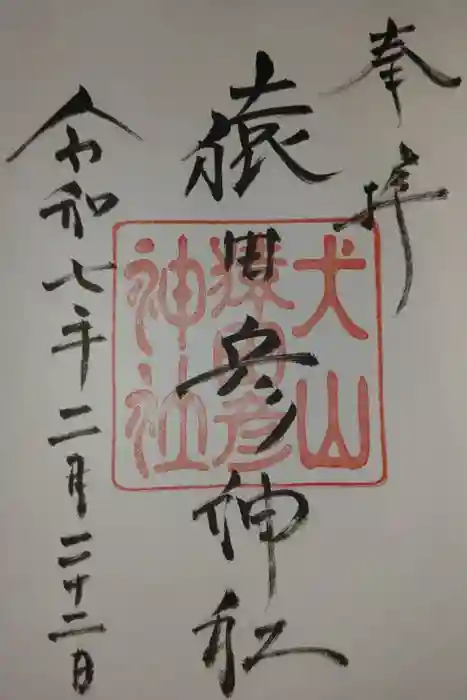 奉拝
猿田彦神社
犬山
猿田彦
神社
令和七年二月二十二日